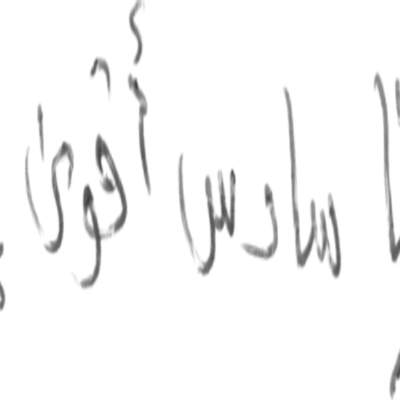 سادس أقوى